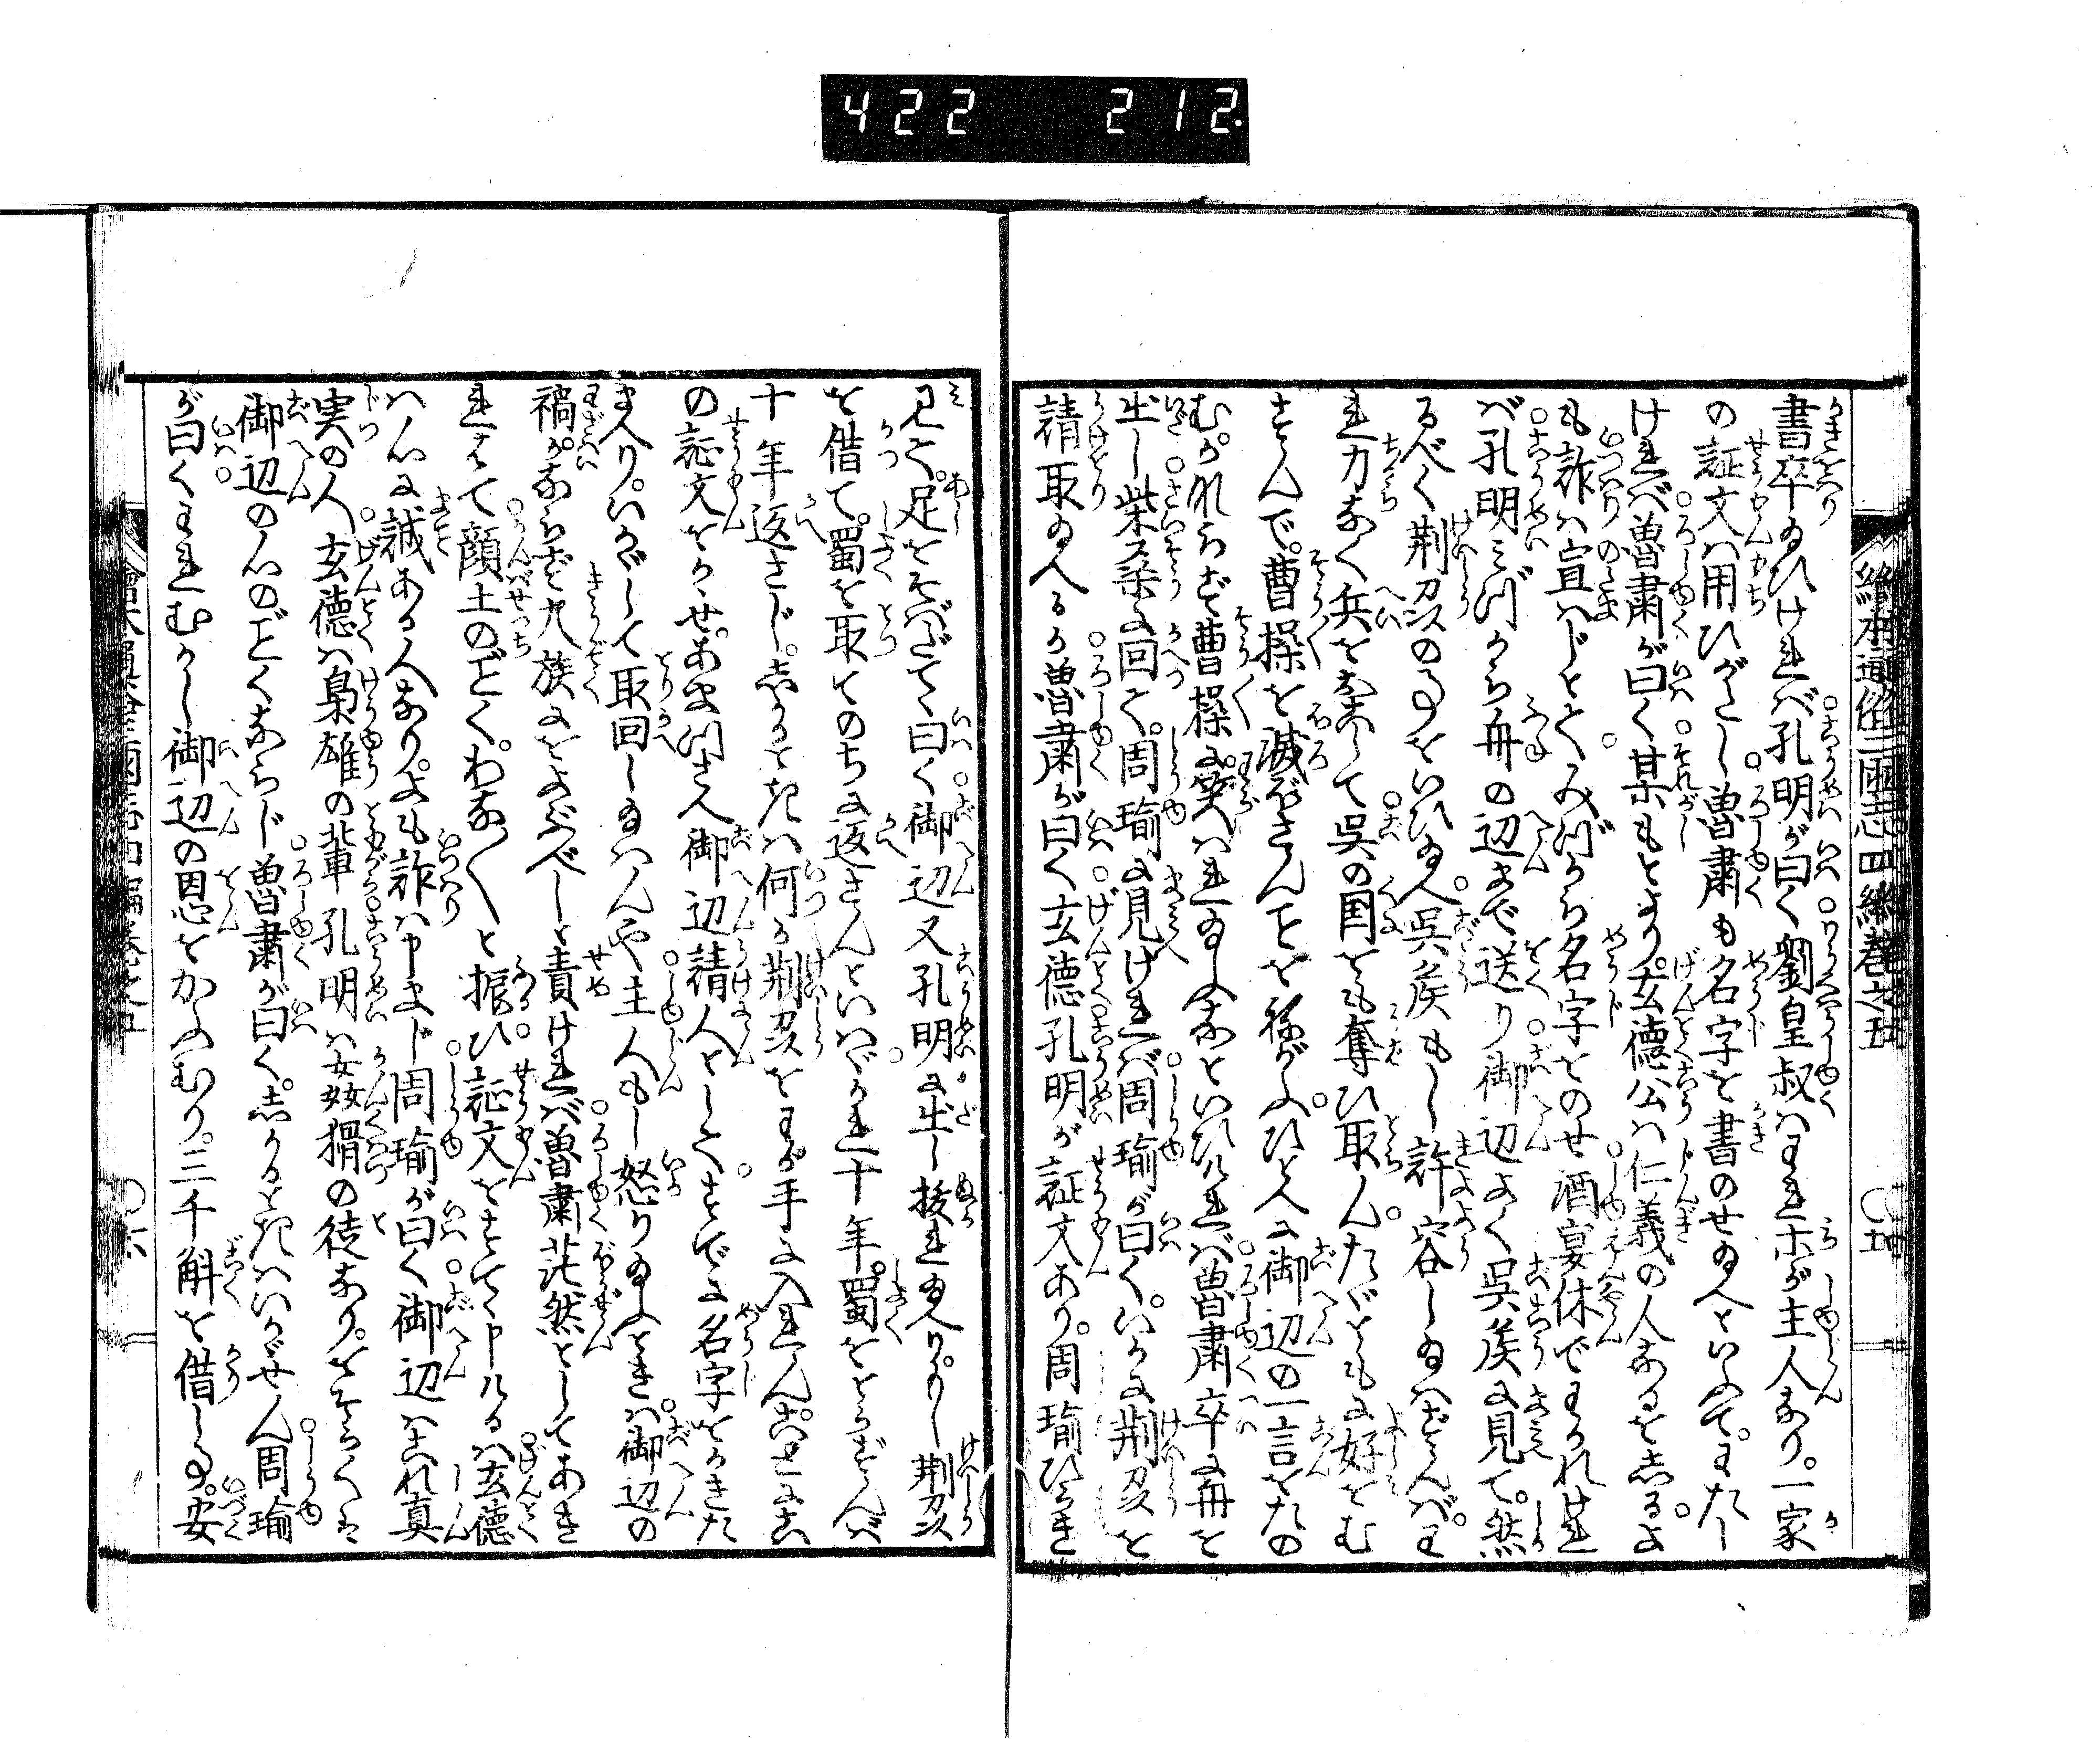 422 212.
繪本通俗三國志四編卷之五 〇五
書卒ゐひけれバ孔明が曰く劉皇叔ハわれホが主人なり。一家
の証文ハ用ひがたし魯粛も名字を書のせゐへといふて。わたし
けれバ魯粛が曰く某もとより。玄徳公ハ仁義の人なるを志るよ
も詐ハ宣ハじとてみづから名字をのせ酒宴休でわかれけれ
バ孔明みづから舟の辺まで送り御辺よく呉侯に見て。然
るべく荆州の事をいひゐへ呉侯もし許容しゐハずんバ。わ
れ力なく兵をおこして呉の国をも奪ひ取ん。たがともに好をむ
すんで。曹操を滅ぼさんことを稱がふ。ひとへに御辺の一言をたの
む。かれらず曹操に笑ハれゐふなといひけれバ魯粛卒に舟を
出し柴桑に回て。周瑜に見けれバ周瑜が曰く。いかに荆州を
請取ゐへるか魯粛が曰く玄徳孔明が証文あり。周瑜ひらき
見て。足をそばだてて曰く御辺又孔明に出し抜れゐへり。もし荆州
を借て。蜀を取てのちに返さんといハヾ。かれ十年。蜀をとらずんバ
十年返さじ。志かるときハ何か荆州をわが手に入れん。ことにこ
の証文をかゝせ。あまつさへ御辺請人として。すでに名字をかきた
まへり。いかゞして取回しゐハんや主人もし怒りゐふときハ。御辺の
禍かならず九族にをよぶべしと責けれバ魯粛茫然としてあき
れはて顔土のごとく。わな〱と振ひ証文をすてゝ申ける。ハ玄徳
ハ心に誠ある人なり。よも詐ハ申まじ周瑜が曰く御辺ハこれ真
実の人玄徳ハ梟雄の輩孔明ハ姦猾の徒なり。をそらくは
御辺の心のごとくならじ魯粛が曰く。志かるときハいかゞせん周瑜
が曰くわれむかし御辺の恩をかふむり。三千斛を借し事。安